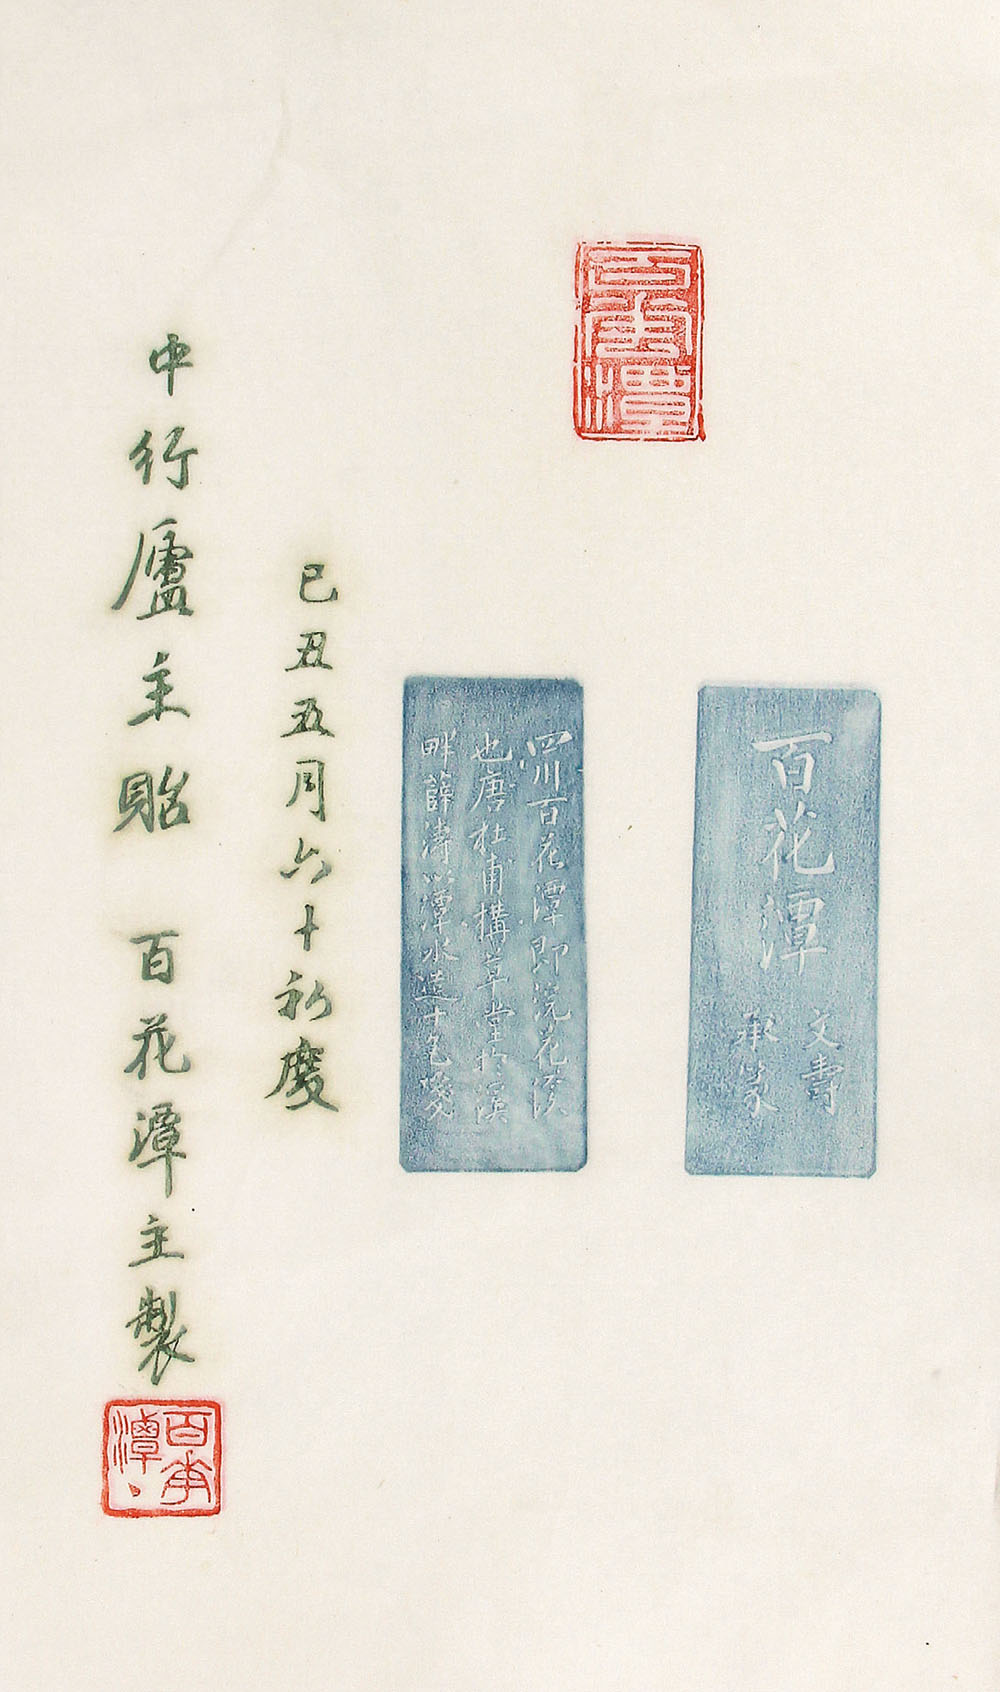 百花潭
百花潭
文壽
承篆
四川百花潭即浣花溪
也唐杜甫構草堂於溪
畔薛濤以潭水造十色箋
己丑五月六十初度
中行廬主貽 百花潭主製
百花潭